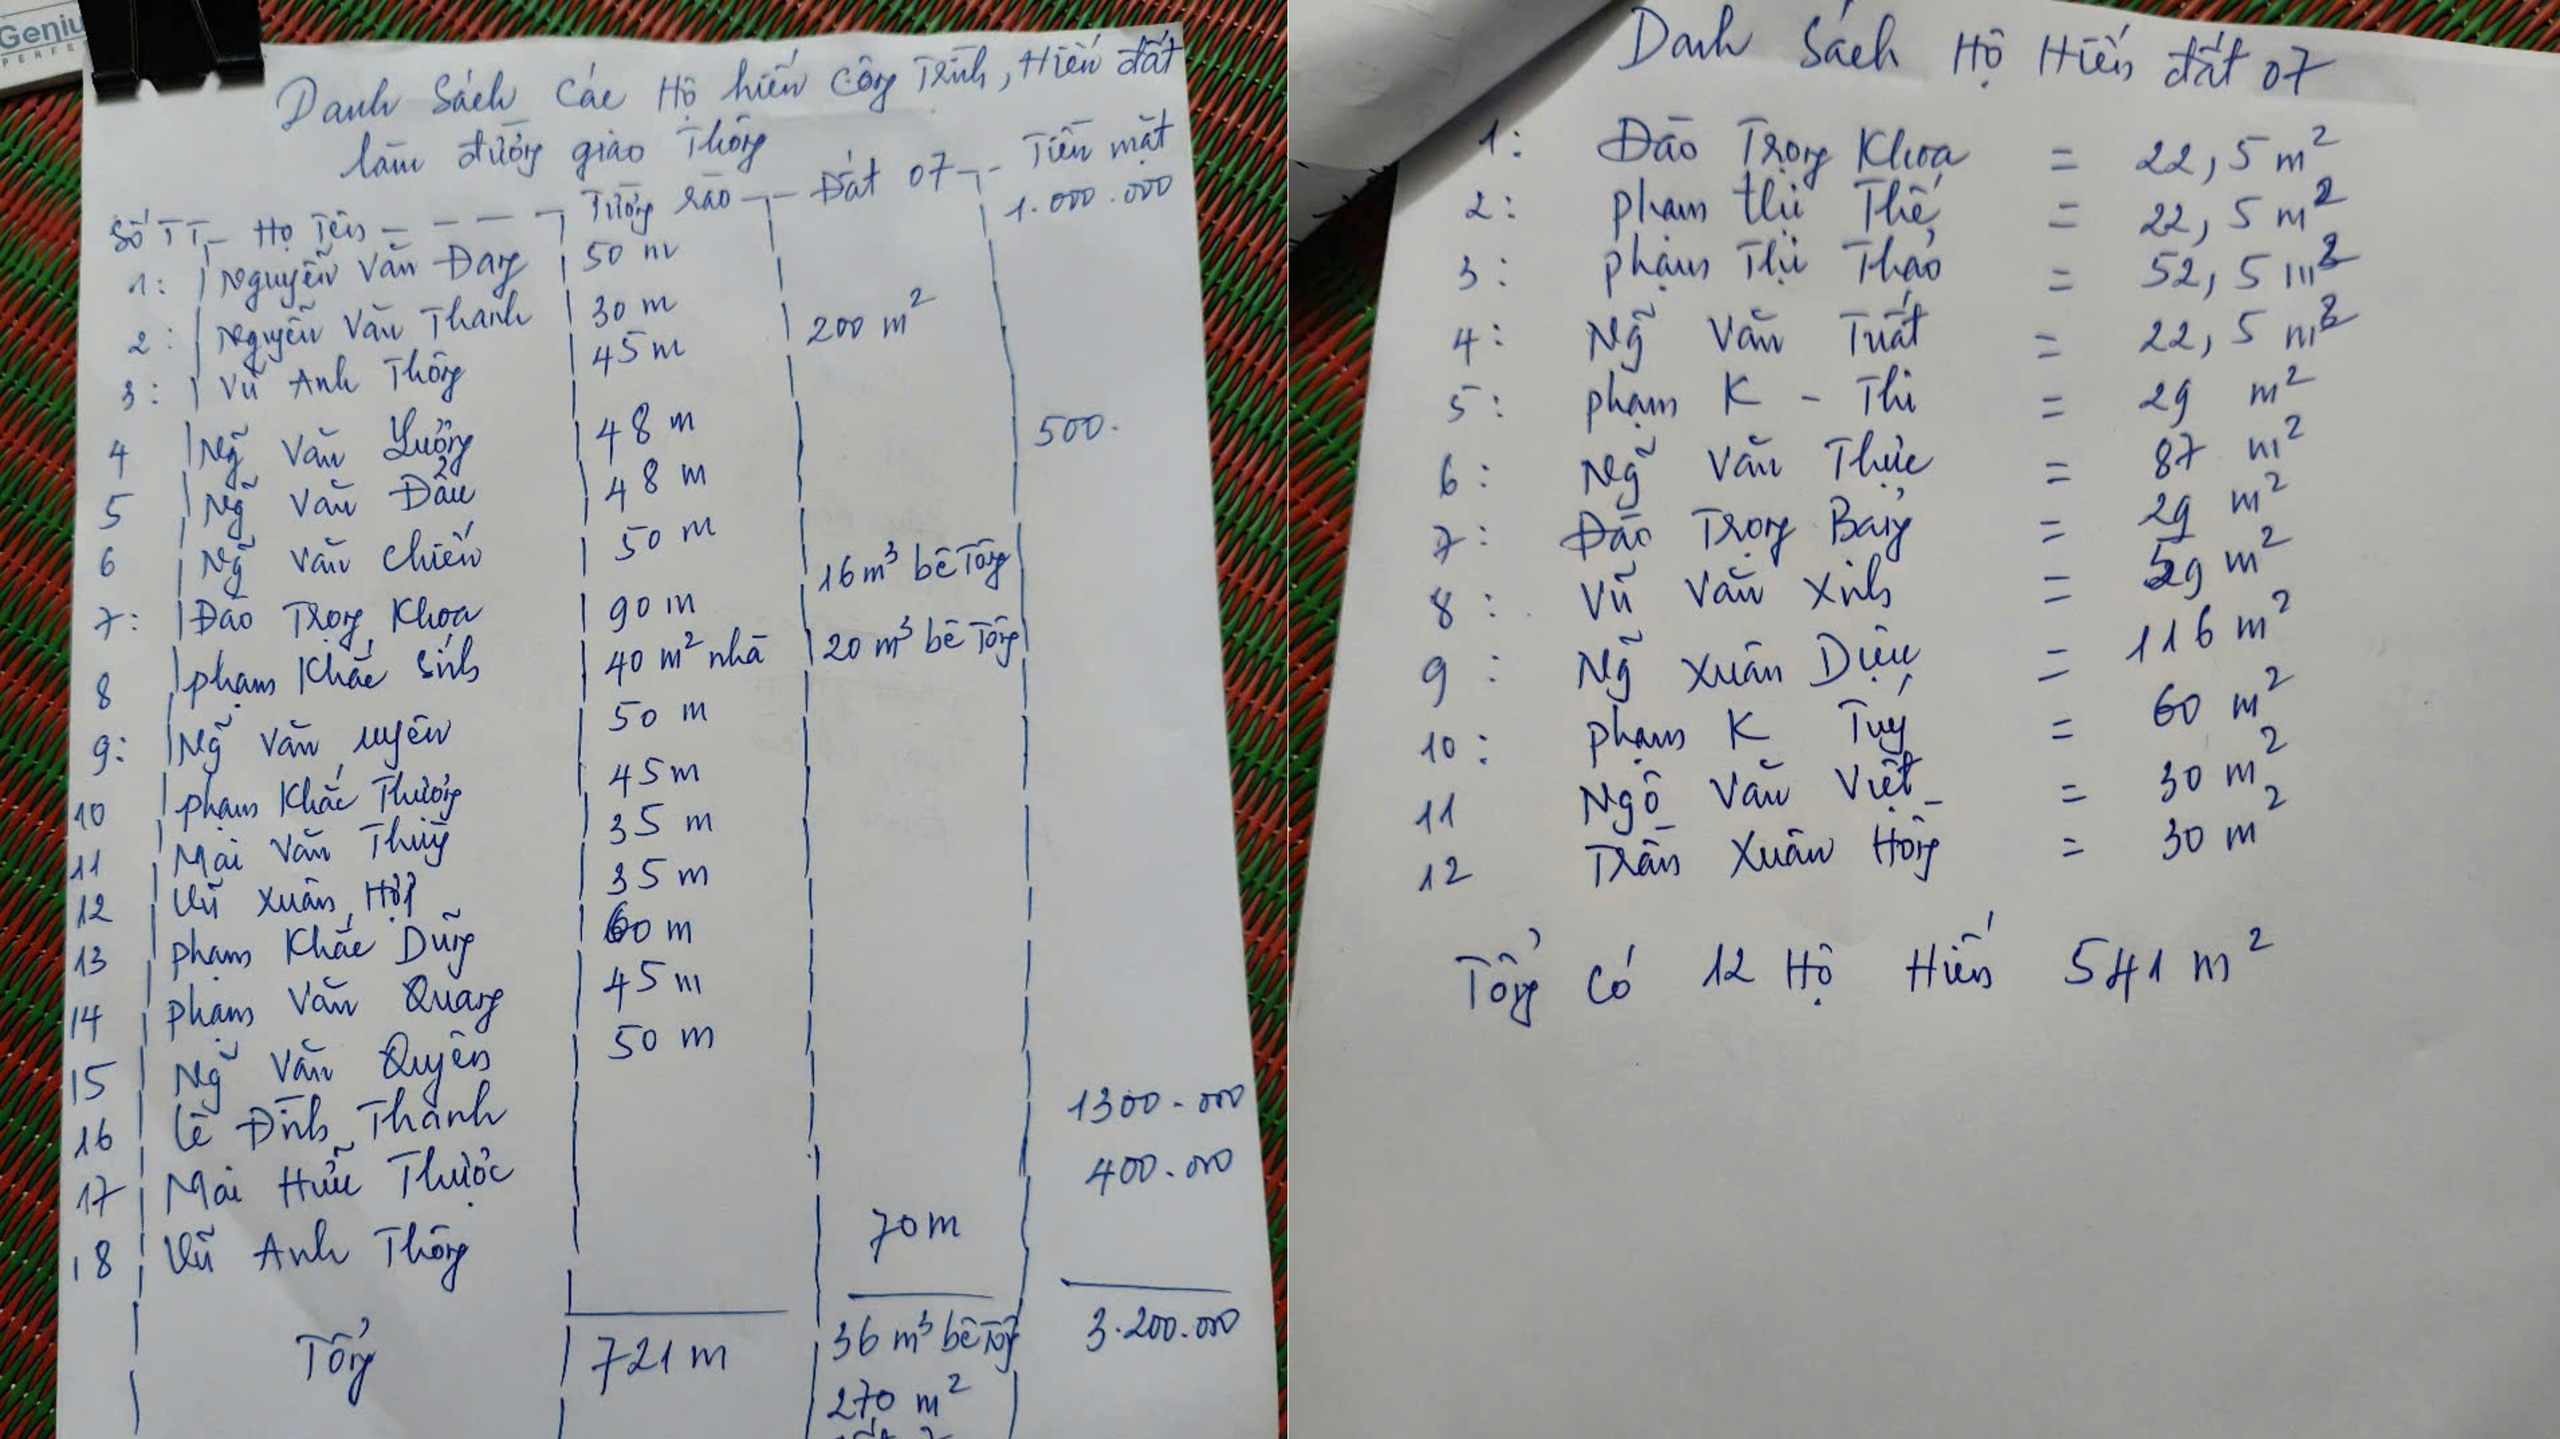 Genius
PERFE
Danh Sách Các Hộ hiến Công Trình, Hiến đất
làm đường giao Thông
Số TT Họ Tên Tường rào Đất 07 Tiền mặt
1: Nguyễn Văn Đang 50 m 1.000.000
2: Nguyễn Văn Thanh 30 m
3: Vũ Anh Thông 45 m 200 m²
4 Ng̃ Văn Lưỡng 48 m 500.
5 Ng̃ Văn Đẩu 48 m
6 Ng̃ Văn Chiến 50 m
7: Đào Trọng Khoa 90 m 16 m³ bê Tông
8 phạm Khắc Sinh 40 m² nhà 20 m³ bê Tông
9: Ng̃ Văn uyên 50 m
10 phạm Khắc Thương 45 m
11 Mai Văn Thuỳ 35 m
12 Vũ Xuân Hợp 35 m
13 phạm Khắc Dũng 60 m
14 phạm Văn Quang 45 m
15 Ng̃ Văn Quyên 50 m
16 Lê Đình Thanh 1300.000
17 Mai Hữu Thược 400.000
18 Vũ Anh Thông 70 m
Tổng 721 m 36 m³ bê Tông 3.200.000
270 m²
Danh Sách Hộ Hiến đất 07
1: Đào Trọng Khoa = 22,5 m²
2: phạm thị Thế = 22,5 m²
3: phạm Thị Thảo = 52,5 m²
4: Ng̃ Văn Tuất = 22,5 m²
5: phạm K - Thi = 29 m²
6: Ng̃ Văn Thực = 87 m²
7: Đào Trọng Bang = 29 m²
8: Vũ Văn Xinh = 29 m²
9: Ng̃ Xuân Diệu = 116 m²
10: phạm K Tuý = 60 m²
11 Ngô Văn Việt = 30 m²
12 Trần Xuân Hồng = 30 m²
Tổng Có 12 Hộ Hiến 541 m²